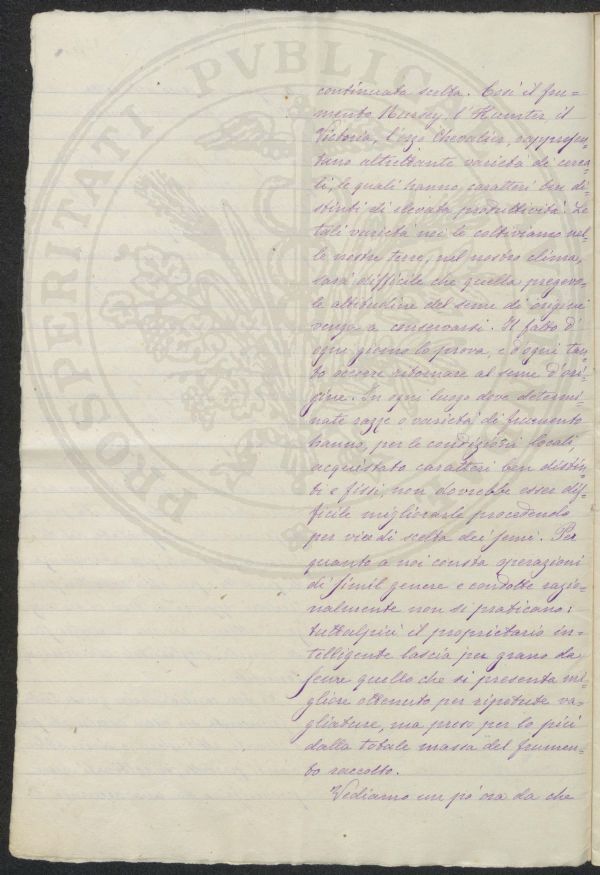 PROSPERITATI PVBLICAE
continuata scelta. Così il fru=
mento Nursey, l'Hunter, il
Victoria, l'orzo Chevalier, rappresen=
tano altrettante varietà di cerea=
li, le quali hanno caratteri ben di=
stinti di elevata produttività. Se
tali varietà noi le coltiviamo nel=
le nostre terre, nel nostro clima,
sarà difficile che quella pregevo=
le attitudine del seme di origine
venga a conservarsi. Il fatto d'
ogni giorno lo prova, e d'ogni tan=
to occorre ritornare al seme d'ori=
gine. In ogni luogo dove determi=
nate razze o varietà di frumento
hanno, per le condizioni locali,
acquistato caratteri ben distin=
ti e fissi, non dovrebbe esser dif=
ficile migliorarle procedendo
per via di scelta dei semi. Per
quanto a noi consta operazioni
di simil genere e condotte razio=
nalmente non si praticano:
tuttalpiù il proprietario in=
telligente lascia per grano da
seme quello che si presenta mi=
gliore ottenuto per ripetute va=
gliature, ma preso per lo più
dalla totale massa del frumen=
to raccolto.
Vediamo un pò ora da che